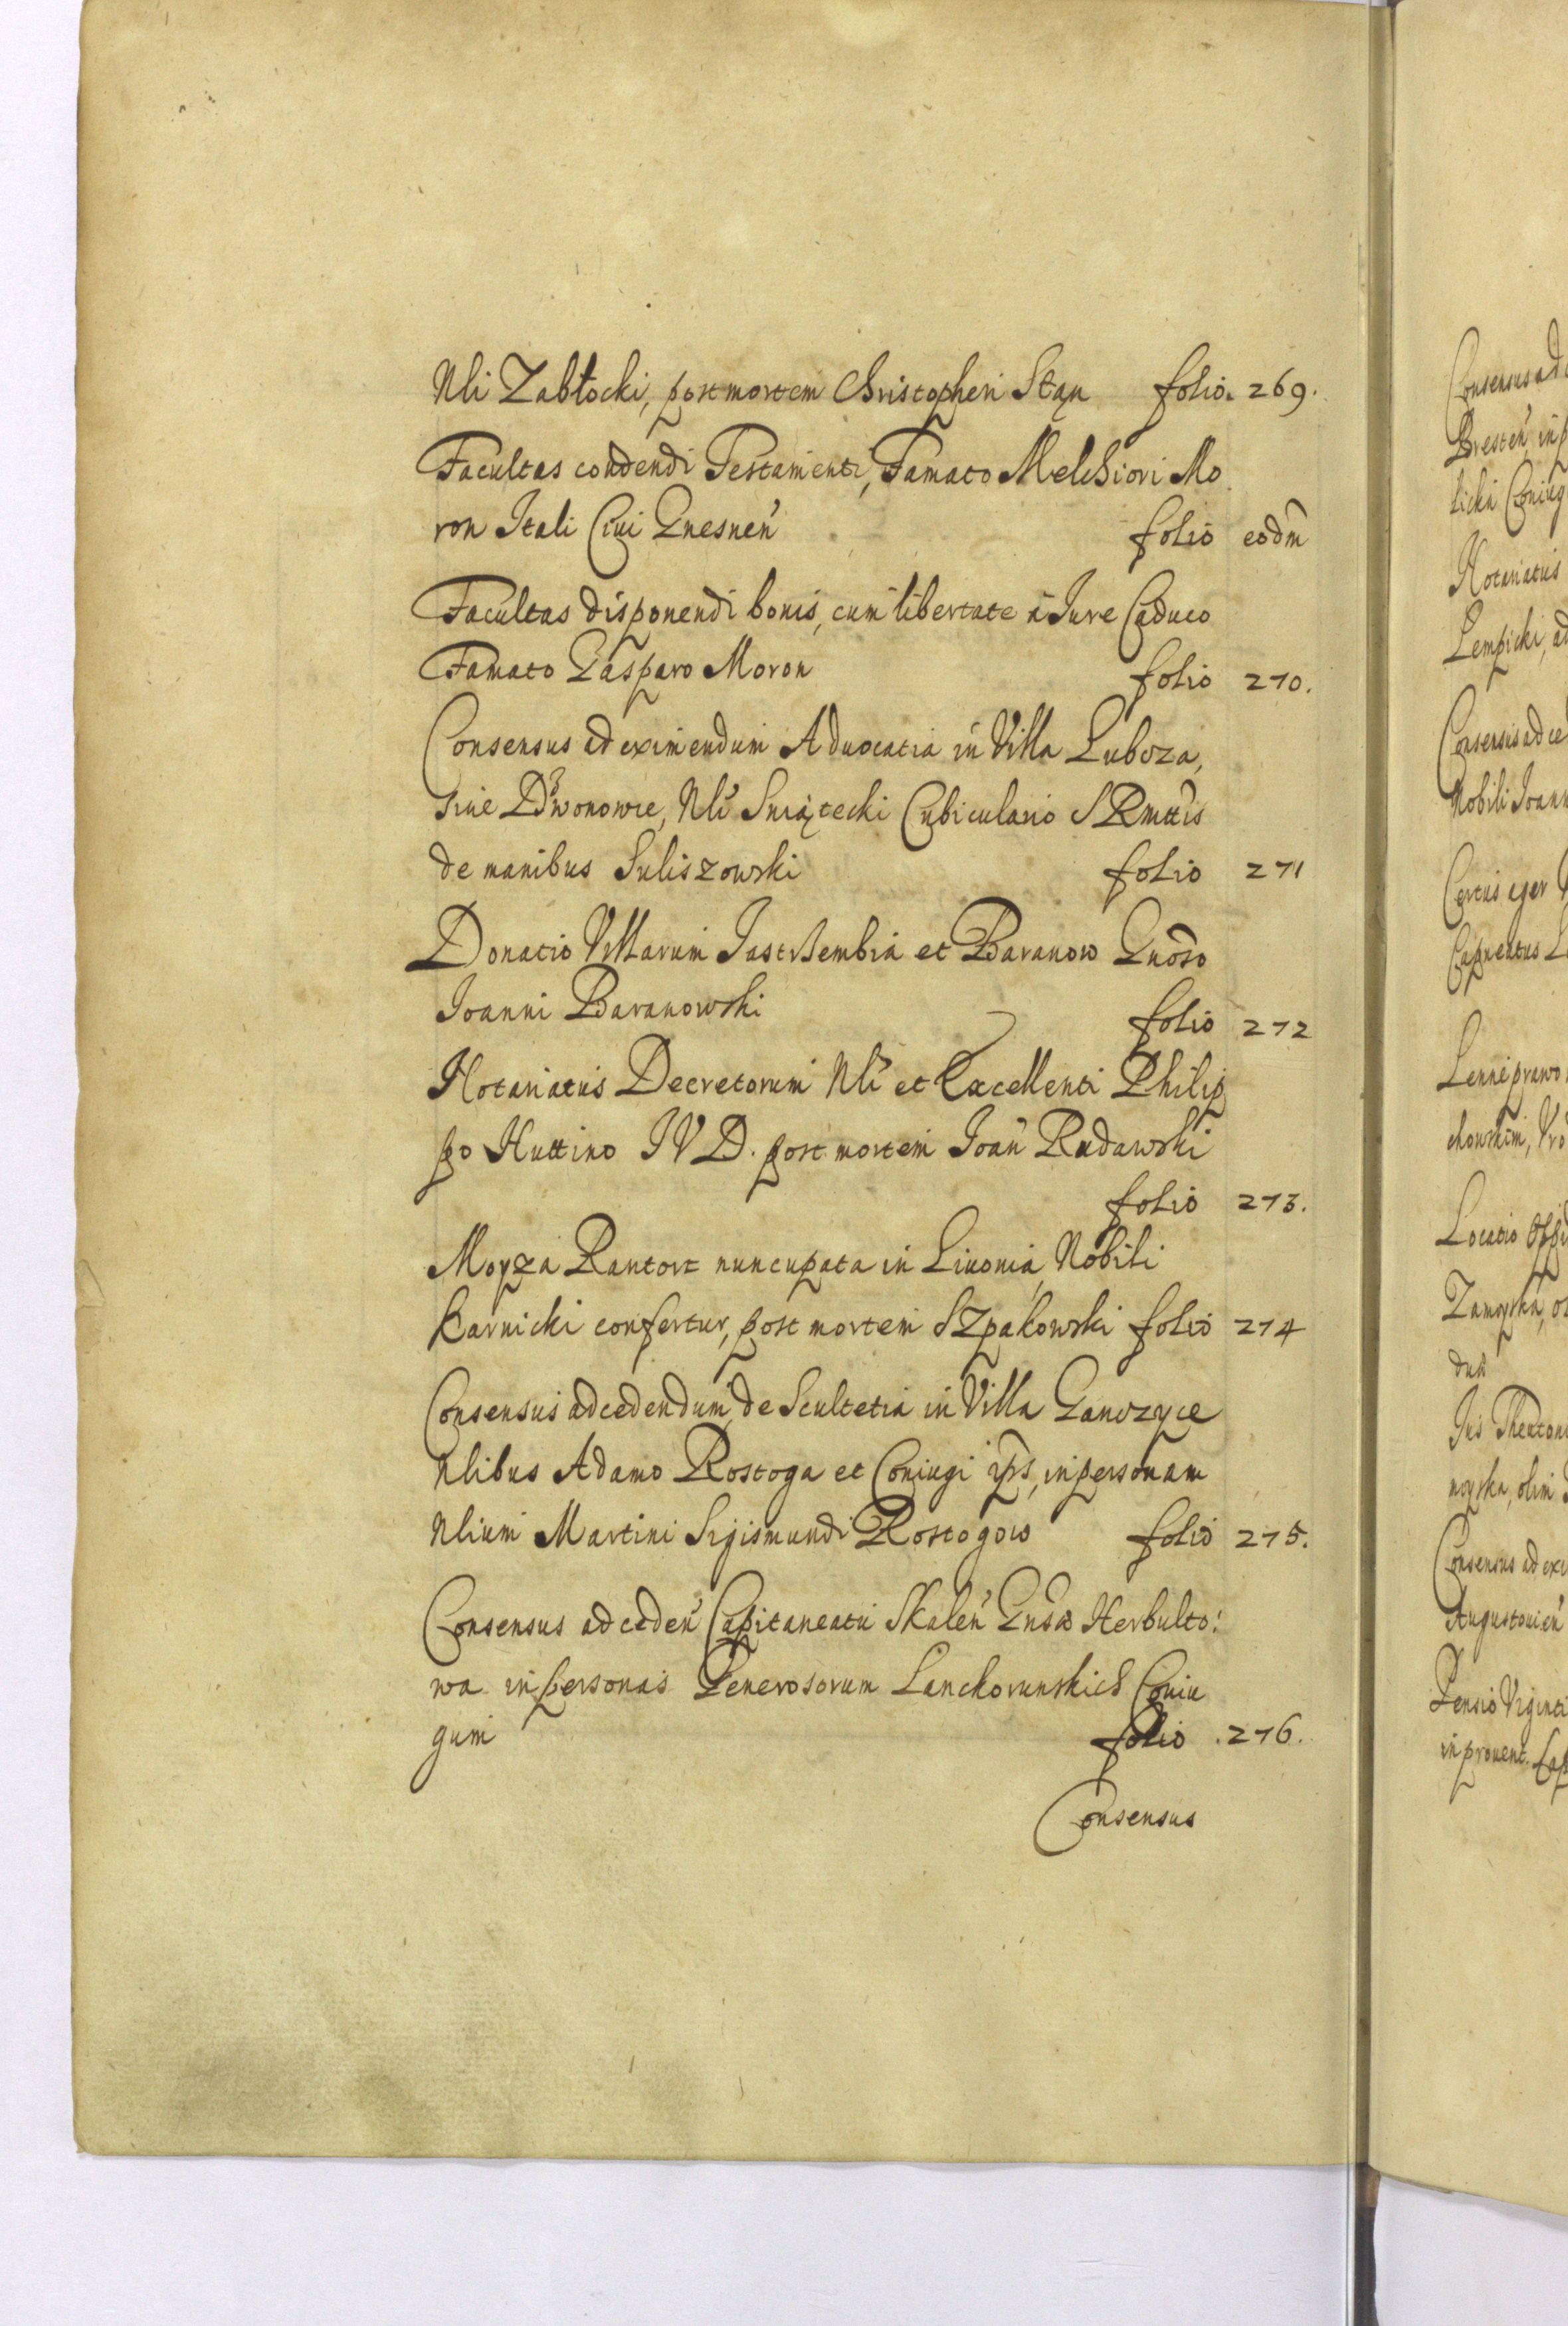 Nli Zabłocki, post mortem Christopheri Stąn folio. 269.
Facultas condendi Testamenti, Famato Melchiori Mo
ron Itali Ciui Gnesneń folio eodm̃
Facultas disponendi bonis, cum libertate à Iure Caduco
Famato Gasparo Moron folio 270.
Consensus ad eximendum Aduocatia in Villa Luboza,
siue Dzwonowie, Nli Sniątecki Cubiculario SRmttis
de manibus Suliszowski folio 271
Donatio Villarum Jastrzembia et Baranow Gnõso
Joanni Baranowski folio 272
Notariatus Decretorum Nli et Excellenti Philip
po Huttino IVD. post mortem Joań Rudawski
folio 273.
Moyza Rantort nuncupata in Liuonia, Nobili
Karnicki confertur, post mortem SZpakowski folio 274
Consensus ad cedendum, de Scultetia in Villa Ganczyce
Nlibus Adamo Rostoga et Coniugi ip̃s, in personam
Nlium Martini Sigismundi Rostogow folio 275.
Consensus ad cedeń Capitaneatu Skaleń Gnsæ Herbulto:
wa in personas Generosorum Lanckorunskich Coniu
gum folio .276.
Consensus
Consensus ad
Bresteń, in p
licki Coniug
Notariatus
Lempicki, ad
Consensus ad ce
Nobili Joann
Certus ager
Capneatus L
Lenne prawo
chowskim, Vro
Locatio Oppid
Zamoyska, o
duń
Jus Theutoni
moyska, olim
Consensus ad exi
Augustouień
Pensio Viginti
in prouent. Cap